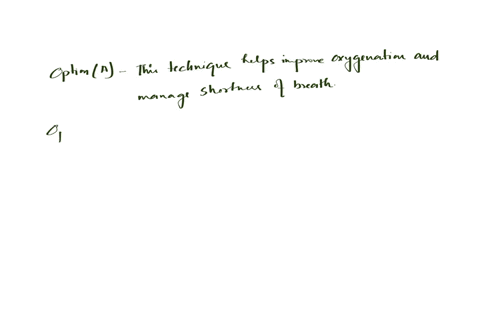 Option (A) - This technique helps improve oxygenation and
manage shortness of breath.
O